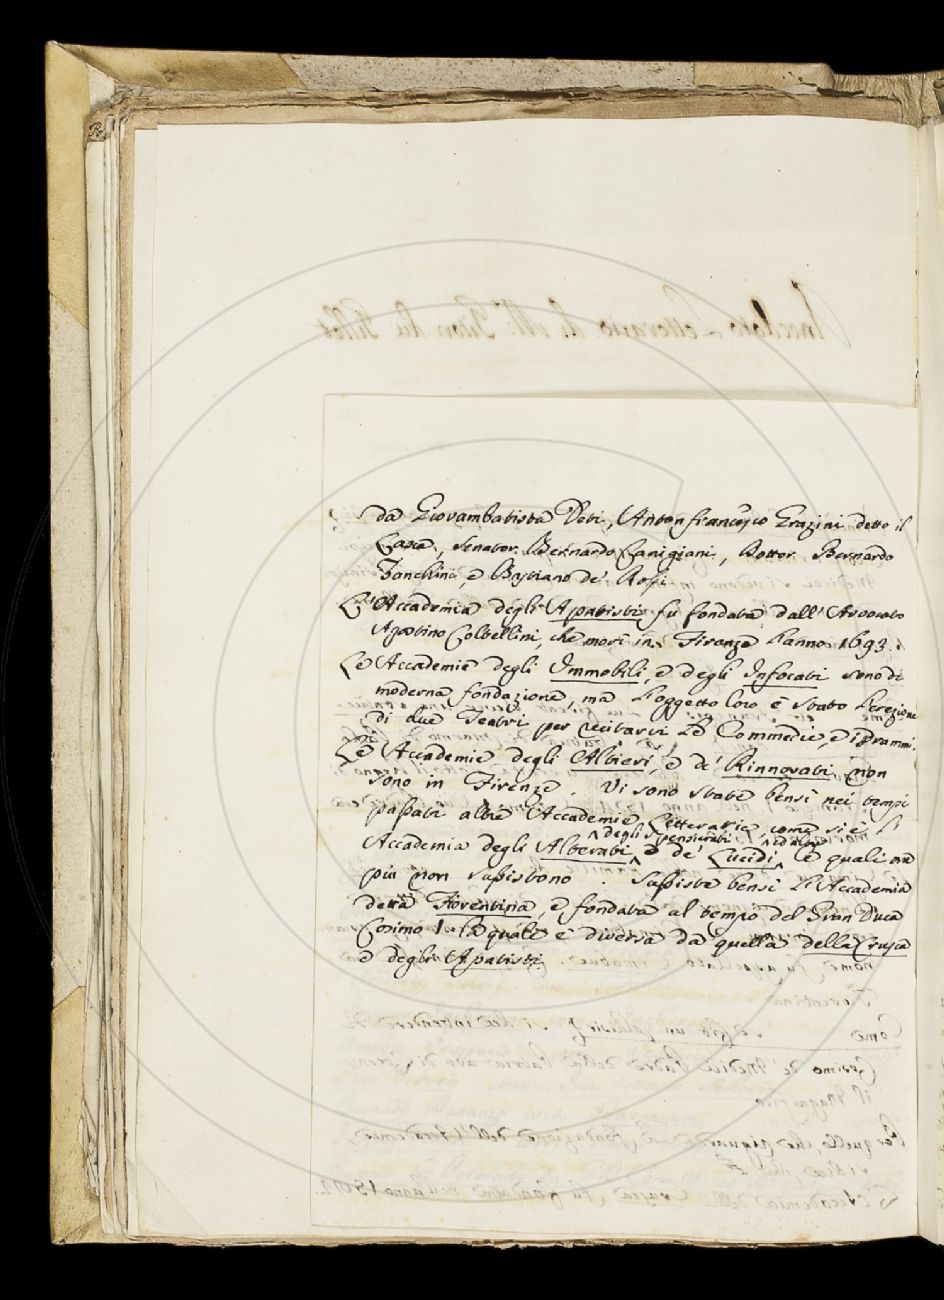 da Giovambatista Deti, Antonfrancesco Grazini detto il
Lasca, Senator Bernardo Canigiani, Dottor Bernardo
Zanchini, e Bastiano de' Rossi
L'Accademia degli Apatisti fu fondata dall'Avvocato
Agostino Coltellini, che morì in Firenze l'anno 1693.
Le Accademie degli Immobili, e degli Infocati sono di
moderna fondazione, ma l'oggetto loro è stato l'erezione
di due Teatri per recitarvi le Commedie, e i drammi.
Le Accademie degli Alticri, e de' Rinnovati non
sono in Firenze. Vi sono state bensì nei tempi
passati altre Accademie Letterarie, come si è l'
degli Spensierati ed altre
Accademia degli Alterati e de' Lucidi le quali ora
più non sussistono. Sussiste bensì l'Accademia
detta Fiorentina, e fondata al tempo del Gran Duca
Cosimo I. la quale è diversa da quella della Crusca
e degli Apatisti.